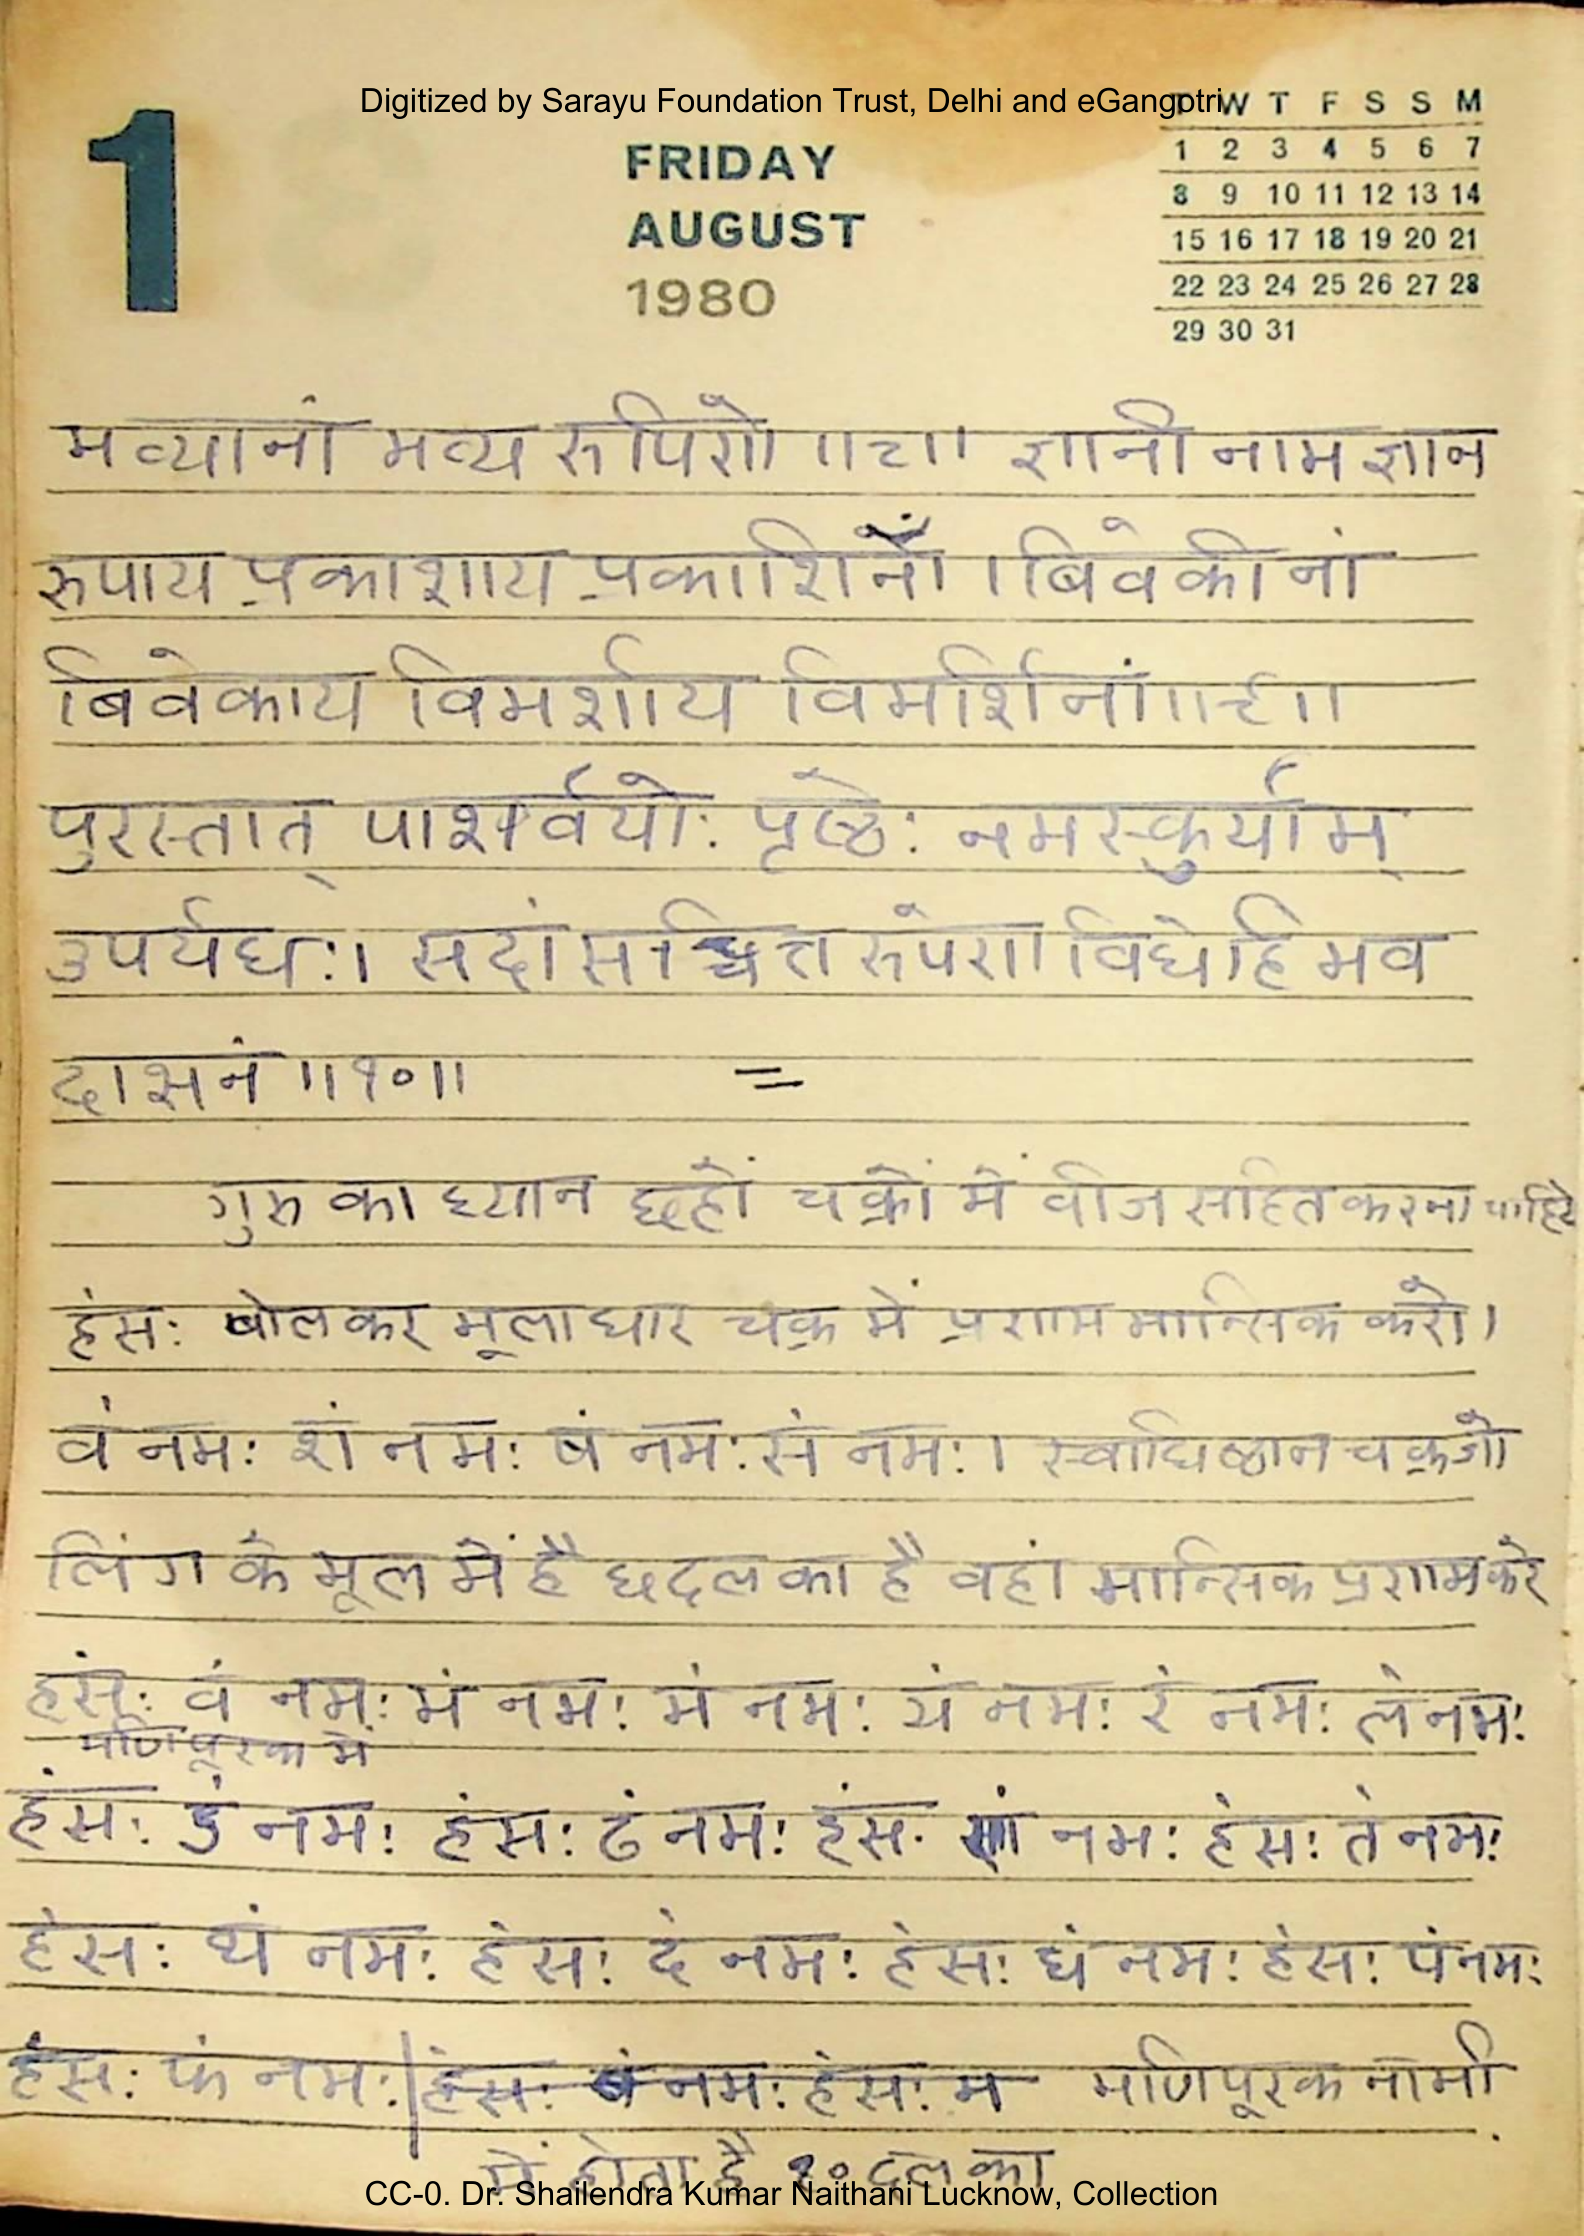 Digitized by Sarayu Foundation Trust, Delhi and eGangotri
1
FRIDAY
AUGUST
1980
T W T F S S M
1 2 3 4 5 6 7
8 9 10 11 12 13 14
15 16 17 18 19 20 21
22 23 24 25 26 27 28
29 30 31
भव्यानां भव्य रूपिणे ॥८॥ ज्ञानीनाम ज्ञान
रूपाय प्रकाशाय प्रकाशिनां । बिवेकीनां
बिवेकाय विमर्शाय विमर्शिनां॥९॥
पुरस्तात् पार्श्वयोः पृष्ठेः नमस्कुर्याम्
उपर्यधः। सदां सच्चित्त रुपेण विधेहि भव
दासनं ॥१०॥ =
गुरु का ध्यान छहों चक्रों में वीज सहित करना चाहिये
हंसः बोलकर मूलाधार चक्र में प्रणाम मान्सिक करो।
वं नमः शं नमः षं नमः सं नमः। स्वाधिष्ठान चक्र जो
लिंग के मूल में है छदल का है वहां मान्सिक प्रणाम करे
हंसः वं नमः भं नमः मं नमः यं नमः रं नमः लं नमः
मणिपूरक में
हंसः डं नमः हंसः ढं नमः हंसः णं नमः हंसः तं नमः
हंसः थं नमः हंसः दं नमः हंसः धं नमः हंसः पं नमः
हंसः फं नमः | हंसः बं नमः हंसः भ मणिपूरक नाभी
में होता है १० दल का
CC-0. Dr. Shailendra Kumar Naithani Lucknow, Collection